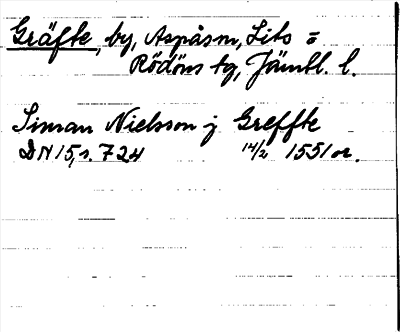 Gräfte, by, Aspåsm, Lits o
Rödöns tg, Jämtl. l.
Siman Nielsson j Greffte
DN 15, s. 724 14/2 1551 or.